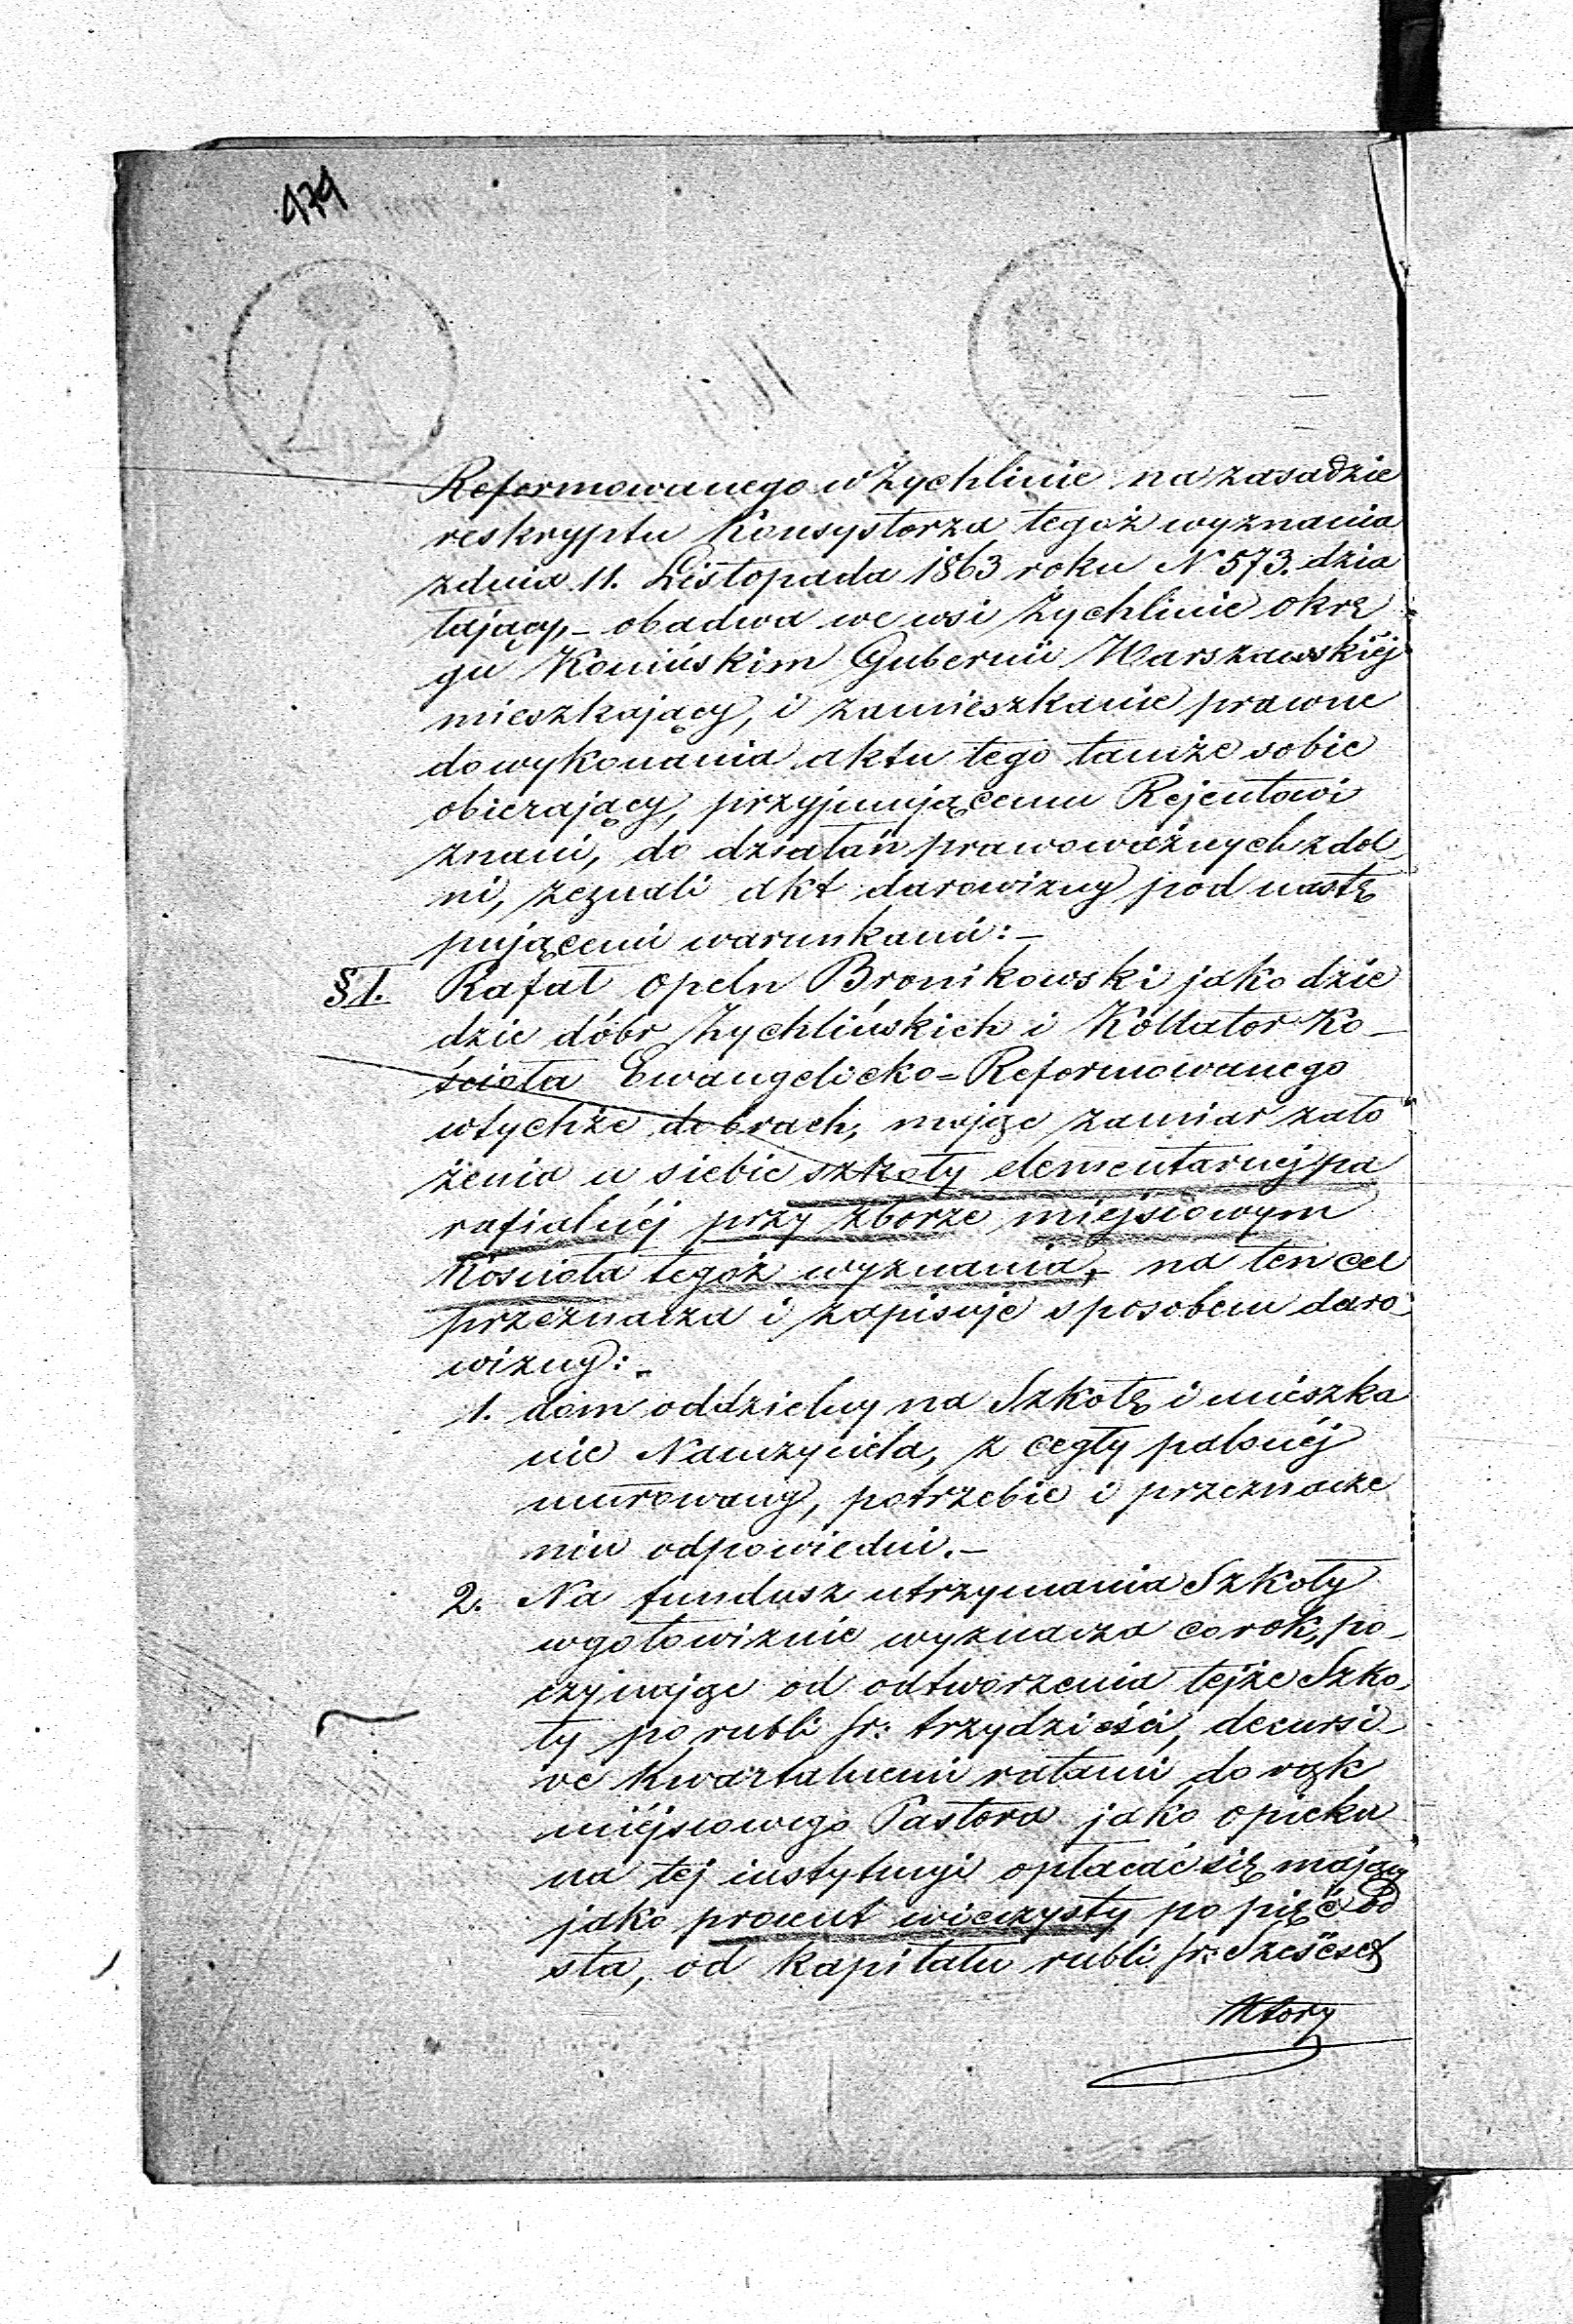 479
Reformowanego w Żychlinie na zasadzie
reskryptu Konsystorza tegoż wyznania
z dnia 11. Listopada 1863 roku N 573. dzia
łający, – obadwa we wsi Żychlinie okrę
gu Konińskim Gubernii Warszawskiéj
mieszkający, i zamieszkanie prawne
do wykonania aktu tego tamże sobie
obierający, przyjmującemu Rejentowi
znani, do działań prawoważnych zdol
ni, zeznali akt darowizny pod nastę
pującemi warunkami: –
§ 1. Rafał Opeln Bronikowski jako dzie
dzic dóbr Żychlińskich i Kollator Ko –
ścioła Ewangelicko = Reformowanego
w tychże dobrach, mając zamiar zało
żenia u siebie szkoły elementarnej pa
rafialnéj przy zborze miejscowym
Kościoła tegoż wyznania, – na ten cel
przeznacza i zapisuje sposobem daro
wizny: –
1. dom oddzielny na Szkołę i mieszka
nie Nauczyciela, z cegły palonéj
murowany, potrzebie i przeznacze
niu odpowiedni. –
2. Na fundusz utrzymania Szkoły
w gotowiznie wyznacza co rok, po –
czynając od otworzenia tejże Szko –
ły po rubli sr: trzydzieści, decursi –
ve kwartalnemi ratami do rąk
miéjscowego Pastora jako opieku
na tej instytucyi opłacać się mający
jako procent wieczysty po pięć od
sta, od kapitału rubli sr: Sześćset
Który